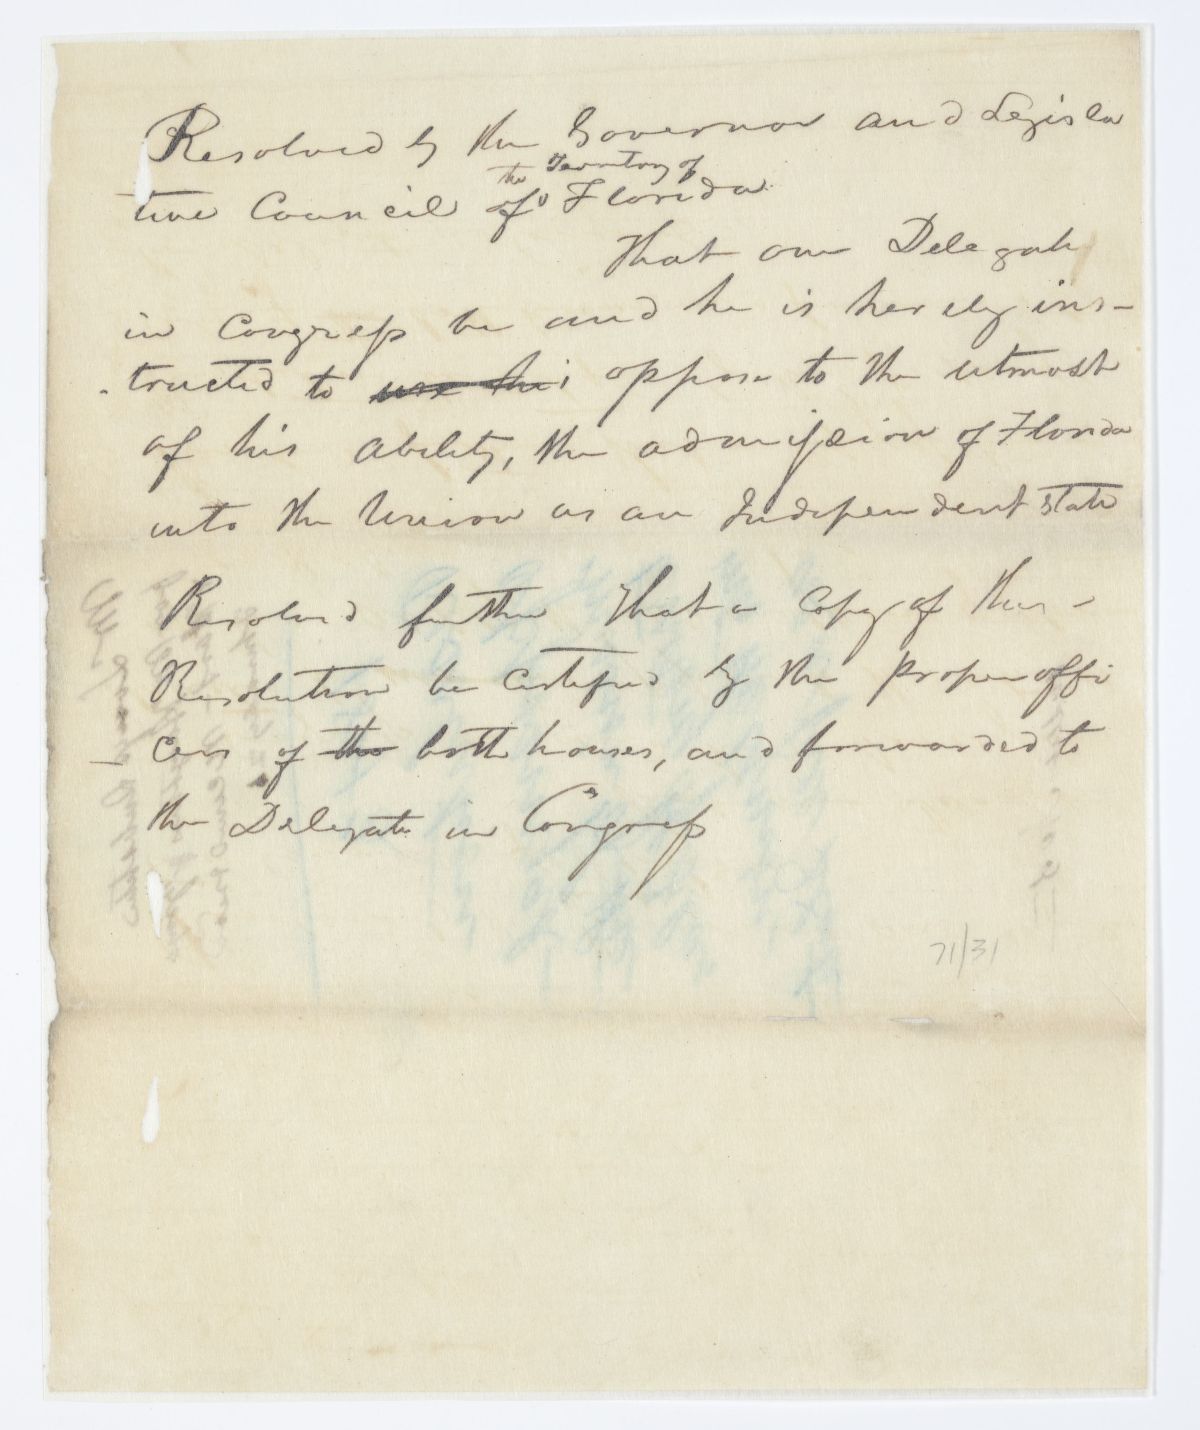 Resolved by the Governor and Legisla
the Territory of
tive Council of Florida
That our Delegate
in Congress be and he is hereby ins-
tructed to use his oppose to the utmost
of his ability, the admission of Florida
into the Union as an Independent State
Resolved further That a Copy of this -
Resolution be certified by the proper offi
cers of the both houses, and forwarded to
the Delegate in Congress
71/31